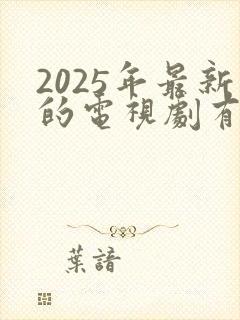 2025年最新
的電視劇有
葉諳